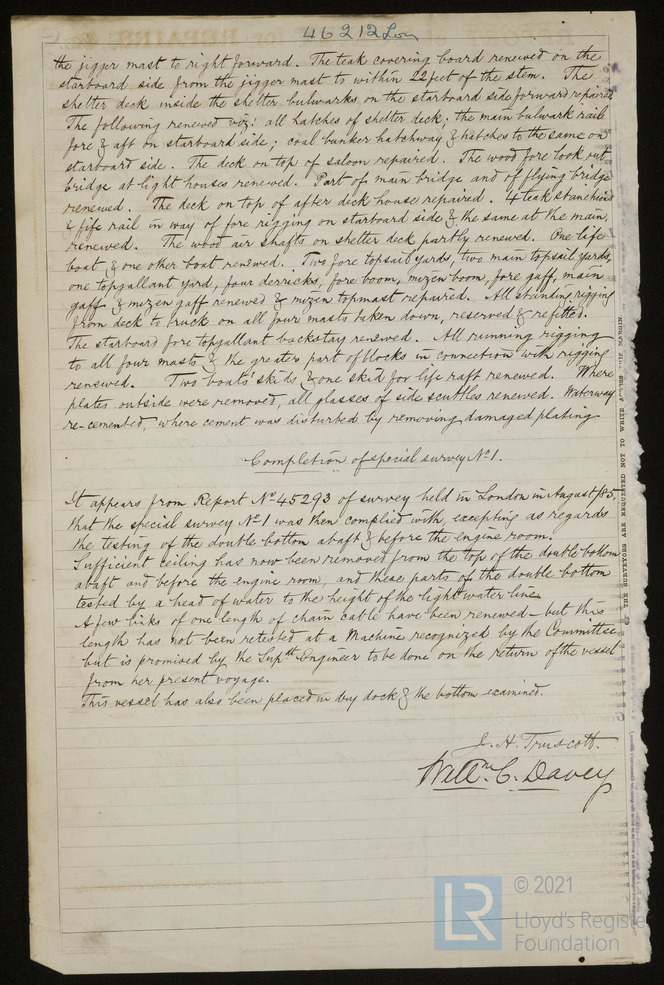 46212 Lon
the jigger mast to right forward. The teak covering board renewed on the
starboard side from the jigger mast to within 22 feet of the stem. The
shelter deck inside the shelter bulwarks on the starboard side forward repaired.
The following renewed viz: all hatches of shelter deck; the main bulwark rail
fore & aft on starboard side; coal bunker hatchway & hatches to the same on
starboard side. The deck on top of saloon repaired. The wood fore look out
bridge at light houses renewed. Part of main bridge and of flying bridge
renewed. The deck on top of after deck house repaired. 4 teak stanchions
& fife rail in way of fore rigging on starboard side & the same at the main,
renewed. The wood air shafts on shelter deck partly renewed. One life
boat & one other boat renewed. Two fore topsail yards, two main topsail yards,
one topgallant yard, four derricks, fore boom, mizen boom, fore gaff, main
gaff & mizen gaff renewed & mizen topmast repaired. All standing rigging
from deck to truck on all four masts taken down, reserved & refitted.
The starboard fore topgallant backstay renewed. All running rigging
to all four masts & the greater part of blocks in connection with rigging
renewed. Two boats' skids & one skid for life raft renewed. Where
plates outside were removed, all glasses of side scuttles renewed. Waterway
re-cemented, where cement was disturbed by removing damaged plating
Completion of special survey No 1.
It appears from Report No 45293 of survey held in London in August /85,
that the special survey No 1 was then complied with, excepting as regards
the testing of the double bottom abaft & before the engine room.
Sufficient ceiling has now been removed from the top of the double bottom
abaft and before the engine room, and these parts of the double bottom
tested by a head of water to the height of the light water line.
A few links of one length of chain cable have been renewed – but this
length has not been retested at a Machine recognized by the Committee
but is promised by the Supdt Engineer to be done on the return of the vessel
from her present voyage.
This vessel has also been placed in dry dock & the bottom examined.
J. H. Truscott.
Willm. C. Davey
THE SURVEYORS ARE REQUESTED NOT TO WRITE ACROSS THIS MARGIN.
LR
© 2021
Lloyd's Register
Foundation